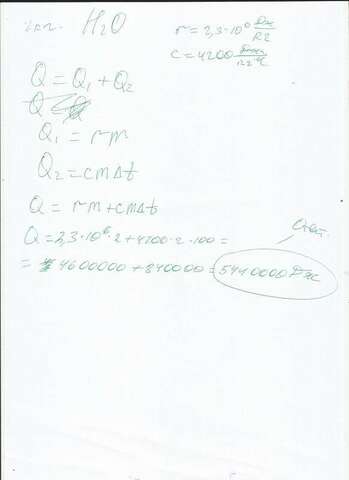 H₂O
r = 2,3·10⁶ Дж/кг
c = 4200 Дж/кг°C
Q = Q₁ + Q₂
Q₁ = rm
Q₂ = cmΔt
Q = rm + cmΔt
Q = 2,3·10⁶·2 + 4200·2·100 =
Ответ.
= 4600000 + 840000 = 5440000 Дж